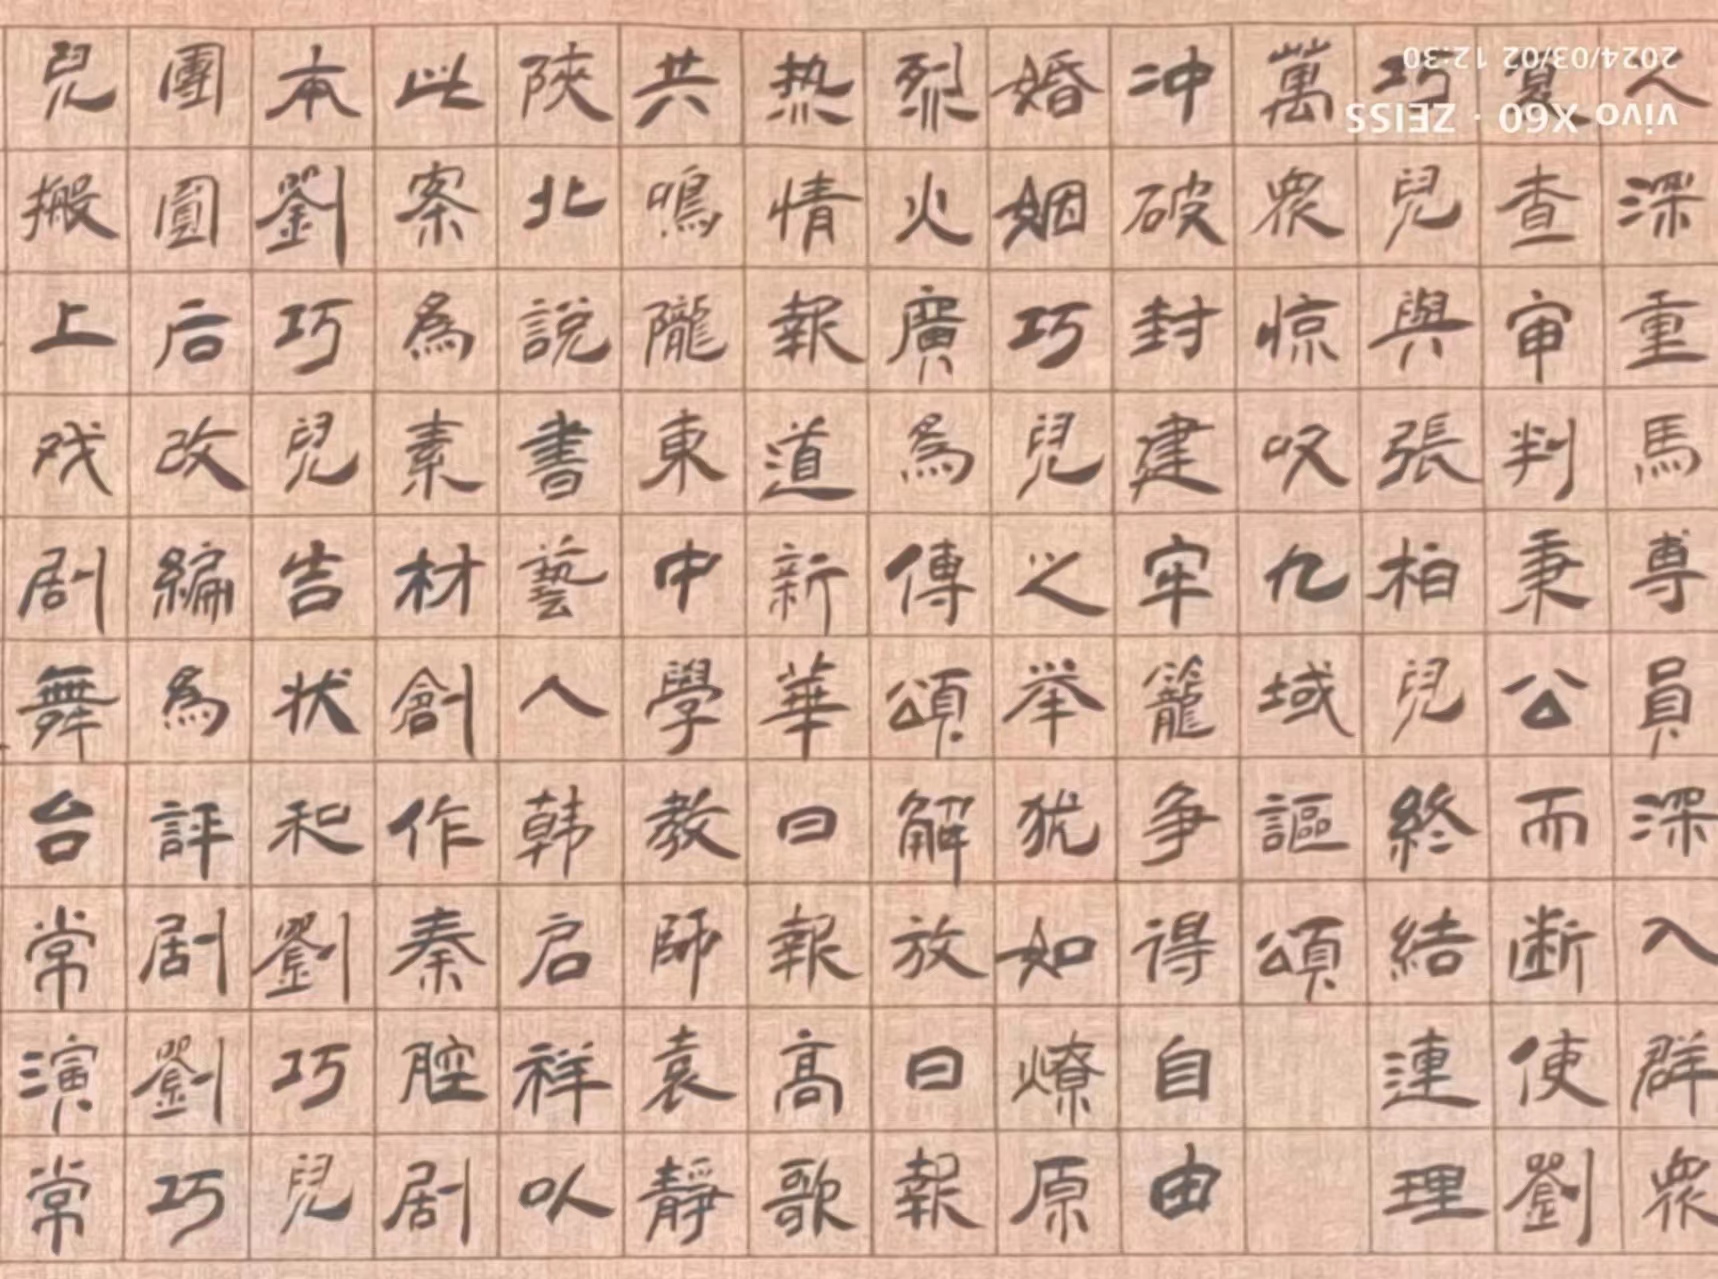 人深重馬專員深入群衆
復查审判秉公而断使劉
巧兒與張柏兒終結連理
萬衆惊叹九域謳頌
冲破封建牢籠争得自由
婚姻巧兒之举犹如燎原
烈火廣爲傳頌解放日報
热情報道新華日報高歌
共鳴隴東中學教師袁静
陝北說書藝人韩启祥以
此案爲素材創作秦腔剧
本劉巧兒告状和劉巧兒
團圓后改編爲評剧劉巧
兒搬上戏剧舞台常演常
2024/03/02 12:30
vivo X60 · ZEISS